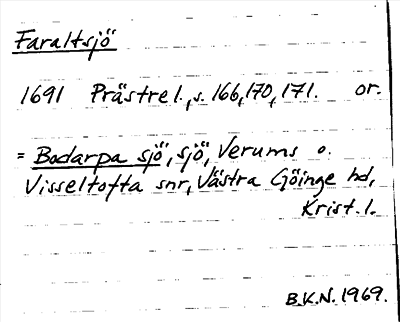 Faraltsjö
1691 Prästrel., s. 166, 170, 171. or.
= Bodarpa sjö, sjö, Verums o.
Visseltofta snr, Västra Göinge hd,
Krist. l.
B.K.N. 1969.